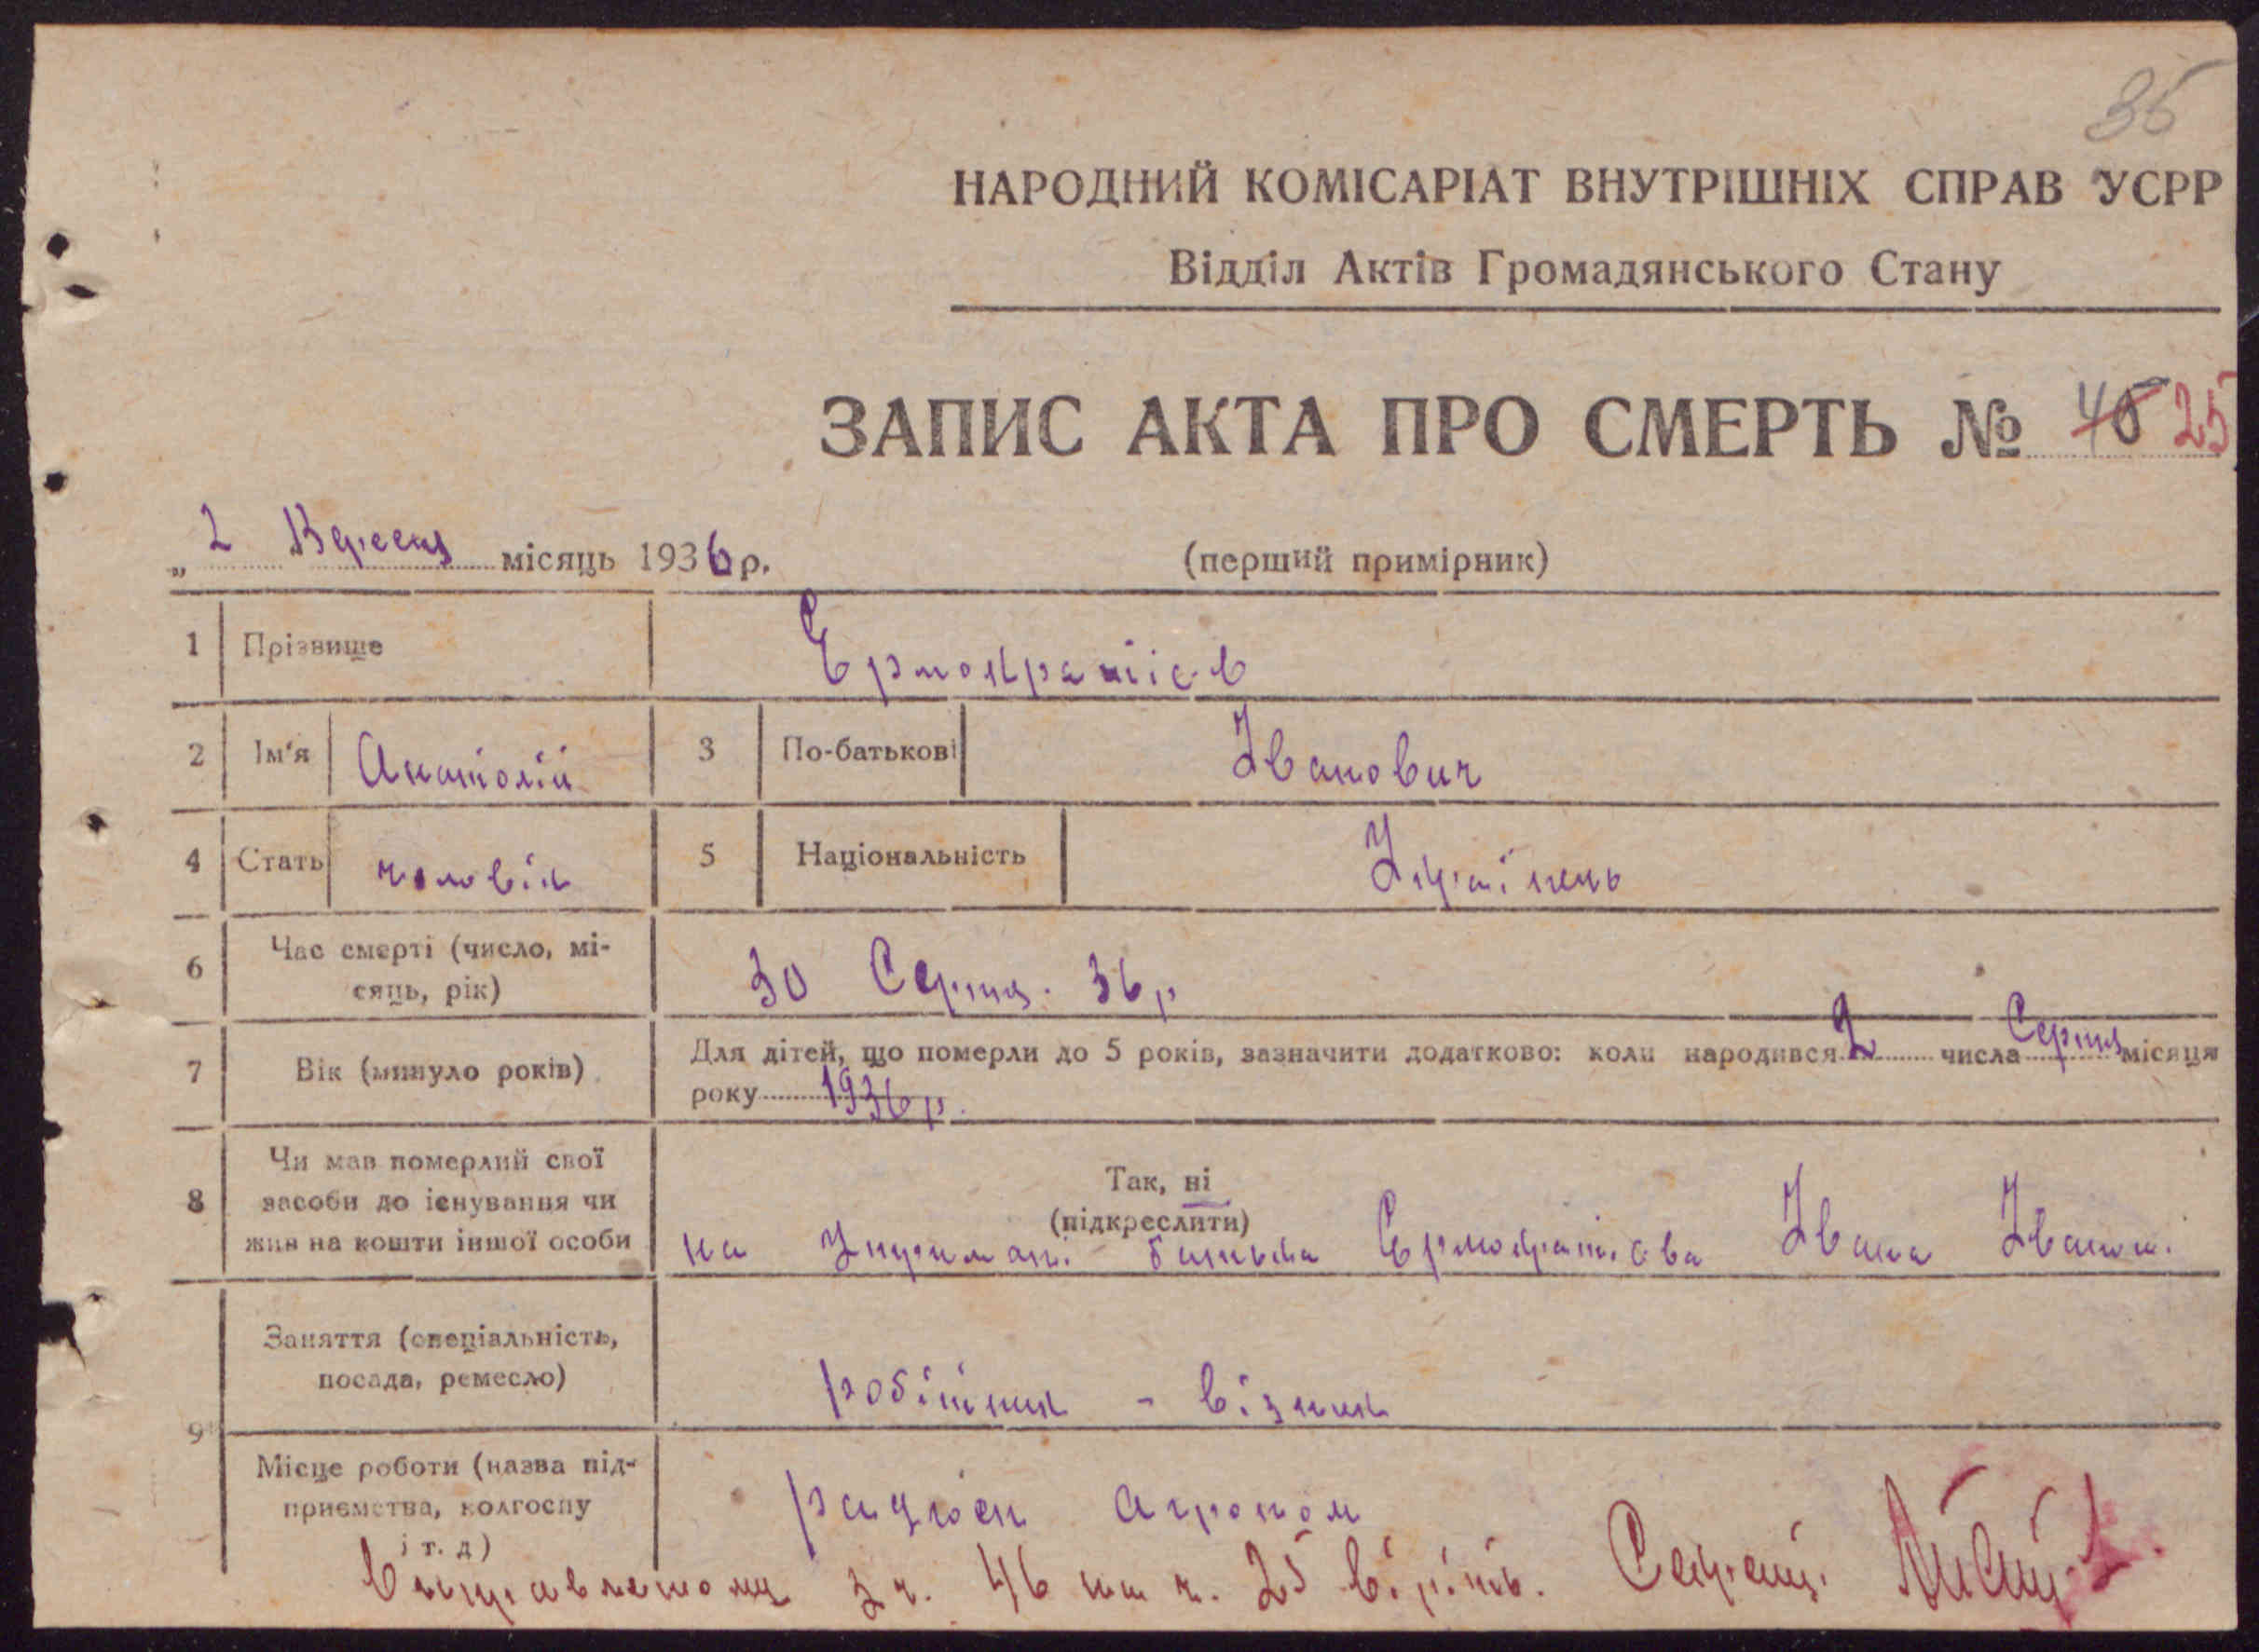 36
НАРОДНИЙ КОМІСАРІАТ ВНУТРІШНІХ СПРАВ УСРР
Відділ Актів Громадянського Стану
ЗАПИС АКТА ПРО СМЕРТЬ № 25
„ 2 Вересня місяць 1936 р.
(перший примірник)
1 Прізвище
2 Ім'я Анатолій 3 По-батькові Іванович
4 Стать чоловік 5 Національність Українець
6 Час смерті (число, мі-
сяць, рік) 30 Серпня 36 р
7 Вік (минуло років) Для дітей, що померли до 5 років, зазначити додатково: коли народився 2 числа Серпня місяця
року 1936 р.
8 Чи мав померлий свої
засоби до існування чи
жив на кошти іншої особи
Так, ні
(підкреслити)
на батька Івана
9 Заняття (спеціальність,
посада, ремесло) робітник - візник
Місце роботи (назва під-
приємства, колгоспу
і т. д) агроном
з ч. 46 на ч. 25 вірить.